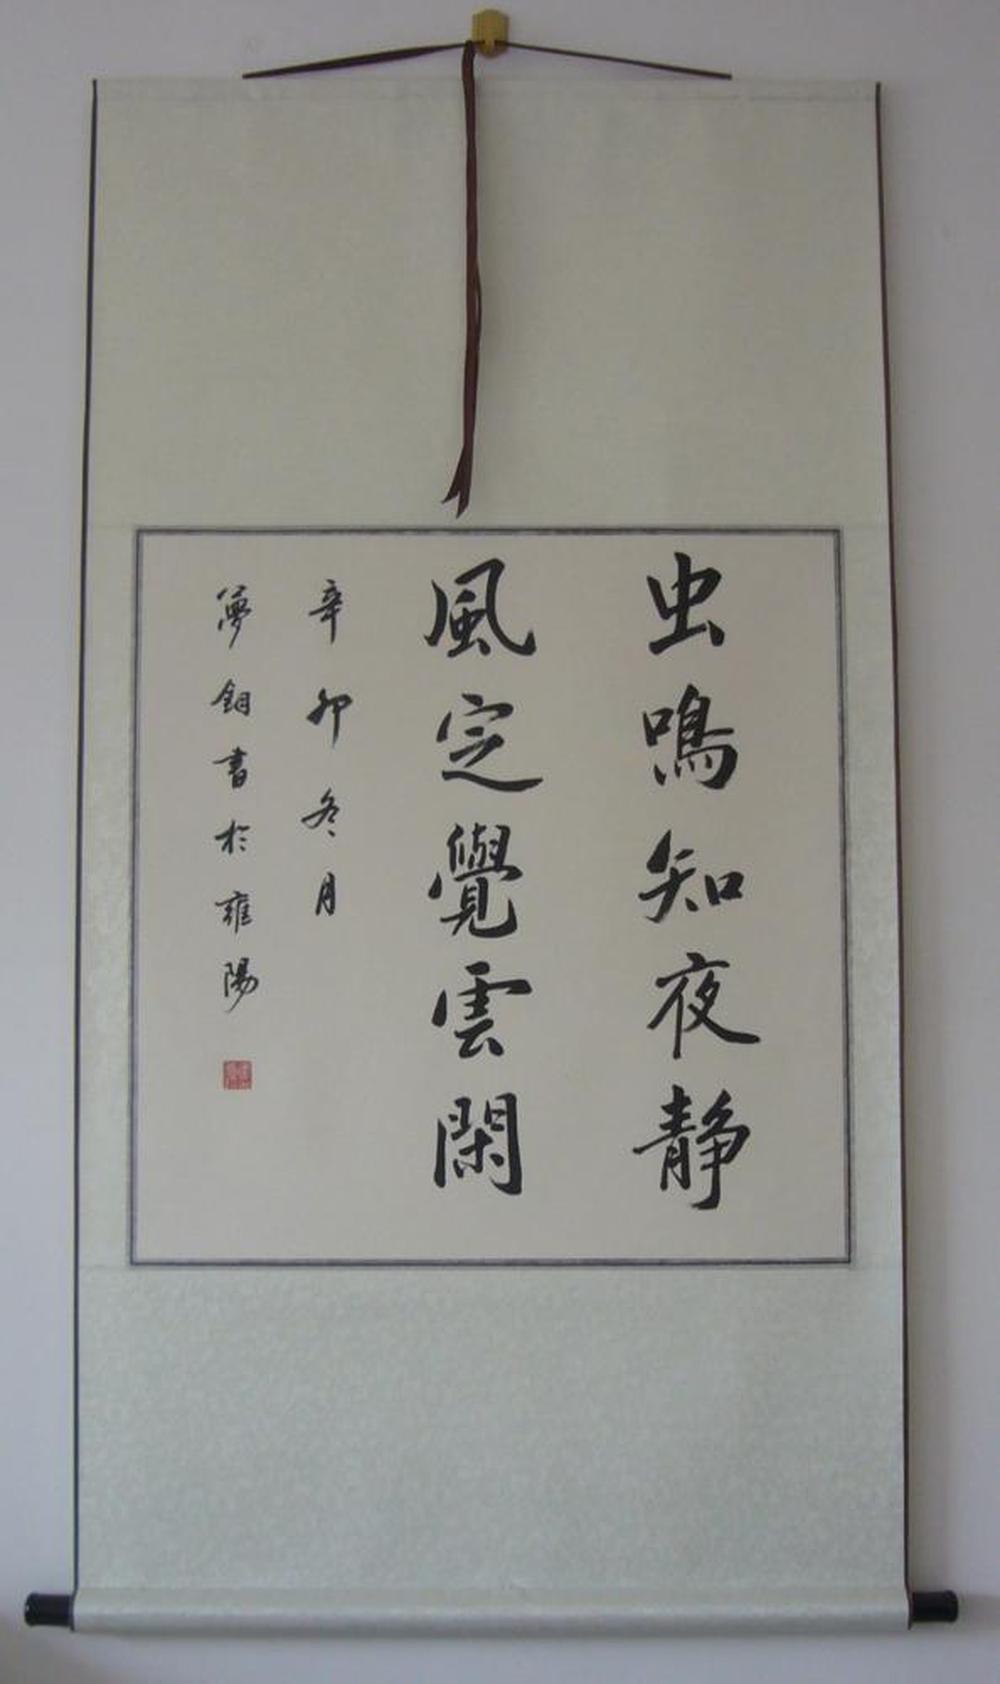 虫鳴知夜静
風定覺雲閑
辛卯冬月
夢銅書於雍陽